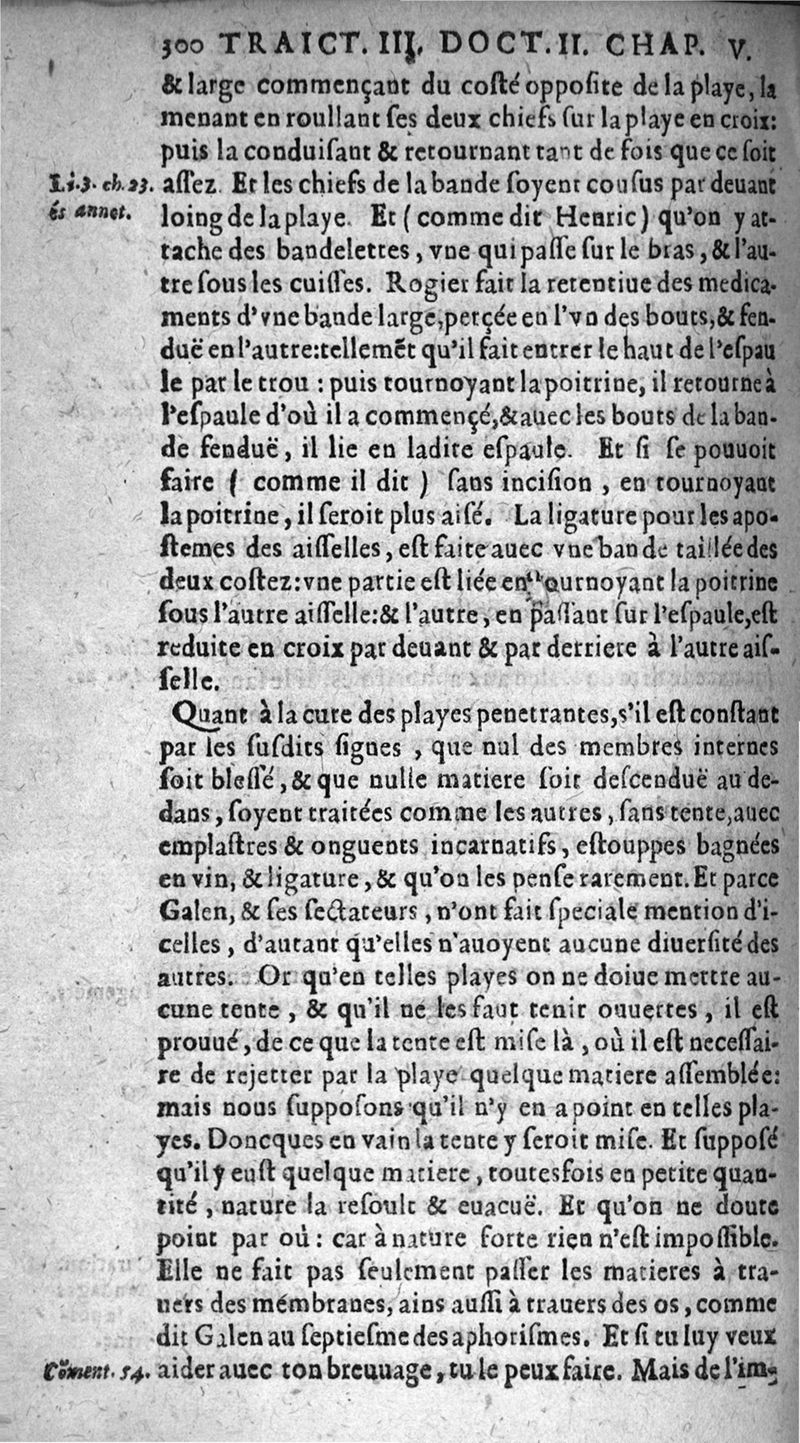 300 TRAICT. III. DOCT. II. CHAP. V.
& large commençant du costé opposite de la playe, la
menant en roullant ſes deux chiefs ſur la playe en croix:
puis la conduiſant & retournant tant de fois que ce ſoit
Li. 3. ch. 23. aſſez. Et les chiefs de la bande ſoyent couſus par deuant
és annot. loing de la playe. Et (comme dit Henric) qu'on y at-
tache des bandelettes, vne qui paſſe ſur le bras, & l'au-
tre ſous les cuiſſes. Rogier fait la retentiue des medica-
ments d'vne bande large, perçée en l'vn des bouts, & fen-
duë en l'autre: tellemẽt qu'il fait entrer le haut de l'eſpau
le par le trou : puis tournoyant la poitrine, il retourne à
l'eſpaule d'où il a commençé, & auec les bouts de la ban-
de fenduë, il lie en ladite eſpaule. Et ſi ſe pouuoit
faire ( comme il dit ) ſans inciſion , en tournoyant
la poitrine, il ſeroit plus aiſé. La ligature pour les apo-
ſtemes des aiſſelles, eſt faite auec vne bande taillée des
deux coſtez: vne partie eſt liée en tournoyant la poitrine
ſous l'autre aiſſelle: & l'autre, en paſſant ſur l'eſpaule, eſt
reduite en croix par deuant & par derriere à l'autre aiſ-
ſelle.
Quant à la cure des playes penetrantes, s'il eſt conſtant
par les ſuſdits ſignes , que nul des membres internes
ſoit bleſſé, & que nulle matiere ſoit deſcenduë au de-
dans, ſoyent traitées comme les autres, ſans tente, auec
emplaſtres & onguents incarnatifs, eſtouppes bagnées
en vin, & ligature, & qu'on les penſe rarement. Et parce
Galen, & ſes ſectateurs, n'ont fait ſpeciale mention d'i-
celles, d'autant qu'elles n'auoyent aucune diuerſité des
autres. Or qu'en telles playes on ne doiue mettre au-
cune tente, & qu'il ne les faut tenir ouuertes, il eſt
prouué, de ce que la tente eſt miſe là, où il eſt neceſſai-
re de rejetter par la playe quelque matiere aſſemblée:
mais nous ſuppoſons qu'il n'y en a point en telles pla-
yes. Doncques en vain la tente y ſeroit miſe. Et ſuppoſé
qu'il y euſt quelque matiere, toutesfois en petite quan-
tité , nature la reſoult & euacuë. Et qu'on ne doute
point par où : car à nature forte rien n'eſt impoſſible.
Elle ne fait pas ſeulement paſſer les matieres à tra-
uers des mémbranes, ains auſſi à trauers des os, comme
dit Galen au ſeptieſme des aphoriſmes. Et ſi tu luy veux
Cõment. 54. aider auec ton breuuage, tu le peux faire. Mais de l'im-